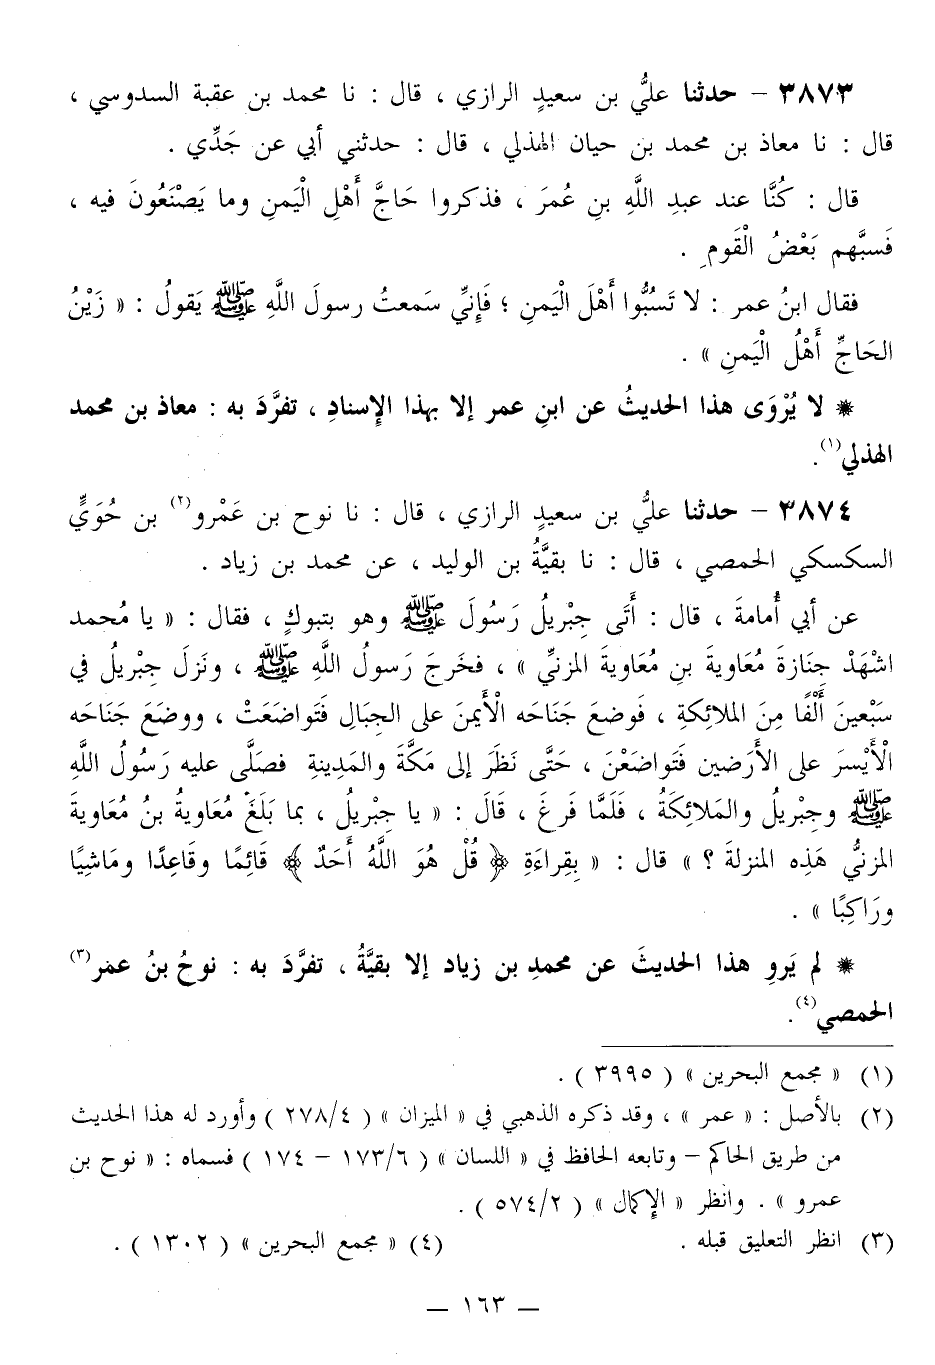 ٣٨٧٣ – حدثنا عليُّ بن سعيدٍ الرازي ، قال : نا محمد بن عقبة السدوسي ،
قال : نا معاذ بن محمد بن حيان الهذلي ، قال : حدثني أبي عن جَدِّي .
قال : كُنَّا عند عبدِ اللَّهِ بنِ عُمرَ ، فذكروا حَاجَّ أَهْلِ الْيَمنِ وما يَصْنَعُونَ فيه ،
فَسبَّهم بَعْضُ الْقَومِ .
فقال ابنُ عمر : لا تَسُبُّوا أَهْلَ الْيَمنِ ؛ فَإِنِّي سَمعتُ رسولَ اللَّهِ ﷺ يَقولُ : « زَيْنُ
الحَاجِّ أَهْلُ الْيَمنِ » .
* لا يُرْوَى هذا الحديثُ عن ابنِ عمر إلا بهذا الإِسنادِ ، تفرَّدَ به : معاذ بن محمد
الهذلي(١).
٣٨٧٤ – حدثنا عليُّ بن سعيدٍ الرازي ، قال : نا نوح بن عَمْرو(٢) بن حُوَيٍّ
السكسكي الحمصي ، قال : نا بقيَّةُ بن الوليد ، عن محمد بن زياد .
عن أبي أُمامةَ ، قال : أَتَى جِبْريلُ رَسُولَ ﷺ وهو بتبوكٍ ، فقال : « يا مُحمد
اشْهَدْ جِنَازةَ مُعَاويةَ بنِ مُعَاويةَ المزنيِّ » ، فخَرجَ رَسولُ اللَّهِ ﷺ ، ونَزلَ جِبْريلُ في
سَبْعينَ أَلْفًا مِنَ الملائِكةِ ، فَوضعَ جَنَاحَه الْأَيمنَ على الجِبَالِ فَتَواضَعَتْ ، ووضَعَ جَنَاحَه
الْأَيْسرَ على الأَرَضين فَتَواضَعْنَ ، حَتَّى نَظَرَ إلى مَكَّةَ والمَدِينةِ فصَلَّى عليه رَسُولُ اللَّهِ
ﷺ وجِبْريلُ والمَلائِكَةُ ، فَلَمَّا فَرغَ ، قَالَ : « يا جِبْريلُ ، بما بَلَغَ مُعَاويةُ بنُ مُعَاويةَ
المزنيُّ هَذِه المنزلةَ ؟ » قال : « بِقِراءَةِ ﴿ قُلْ هُوَ اللَّهُ أَحَدٌ ﴾ قَائِمًا وقَاعِدًا ومَاشِيًا
ورَاكِبًا » .
* لم يَروِ هذا الحديثَ عن محمدِ بن زياد إلا بقيَّةُ ، تفرَّدَ به : نوحُ بنُ عمر(٣)
الحمصي(٤).
(١) « مجمع البحرين » ( ٣٩٩٥ ) .
(٢) بالأصل : « عمر » ، وقد ذكره الذهبي في « الميزان » ( ٢٧٨/٤ ) وأورد له هذا الحديث
من طريق الحاكم – وتابعه الحافظ في « اللسان » ( ١٧٣/٦ – ١٧٤ ) فسماه : « نوح بن
عمرو » . وانظر « الإكمال » ( ٥٧٤/٢ ) .
(٣) انظر التعليق قبله . (٤) « مجمع البحرين » ( ١٣٠٢ ) .
– ١٦٣ –